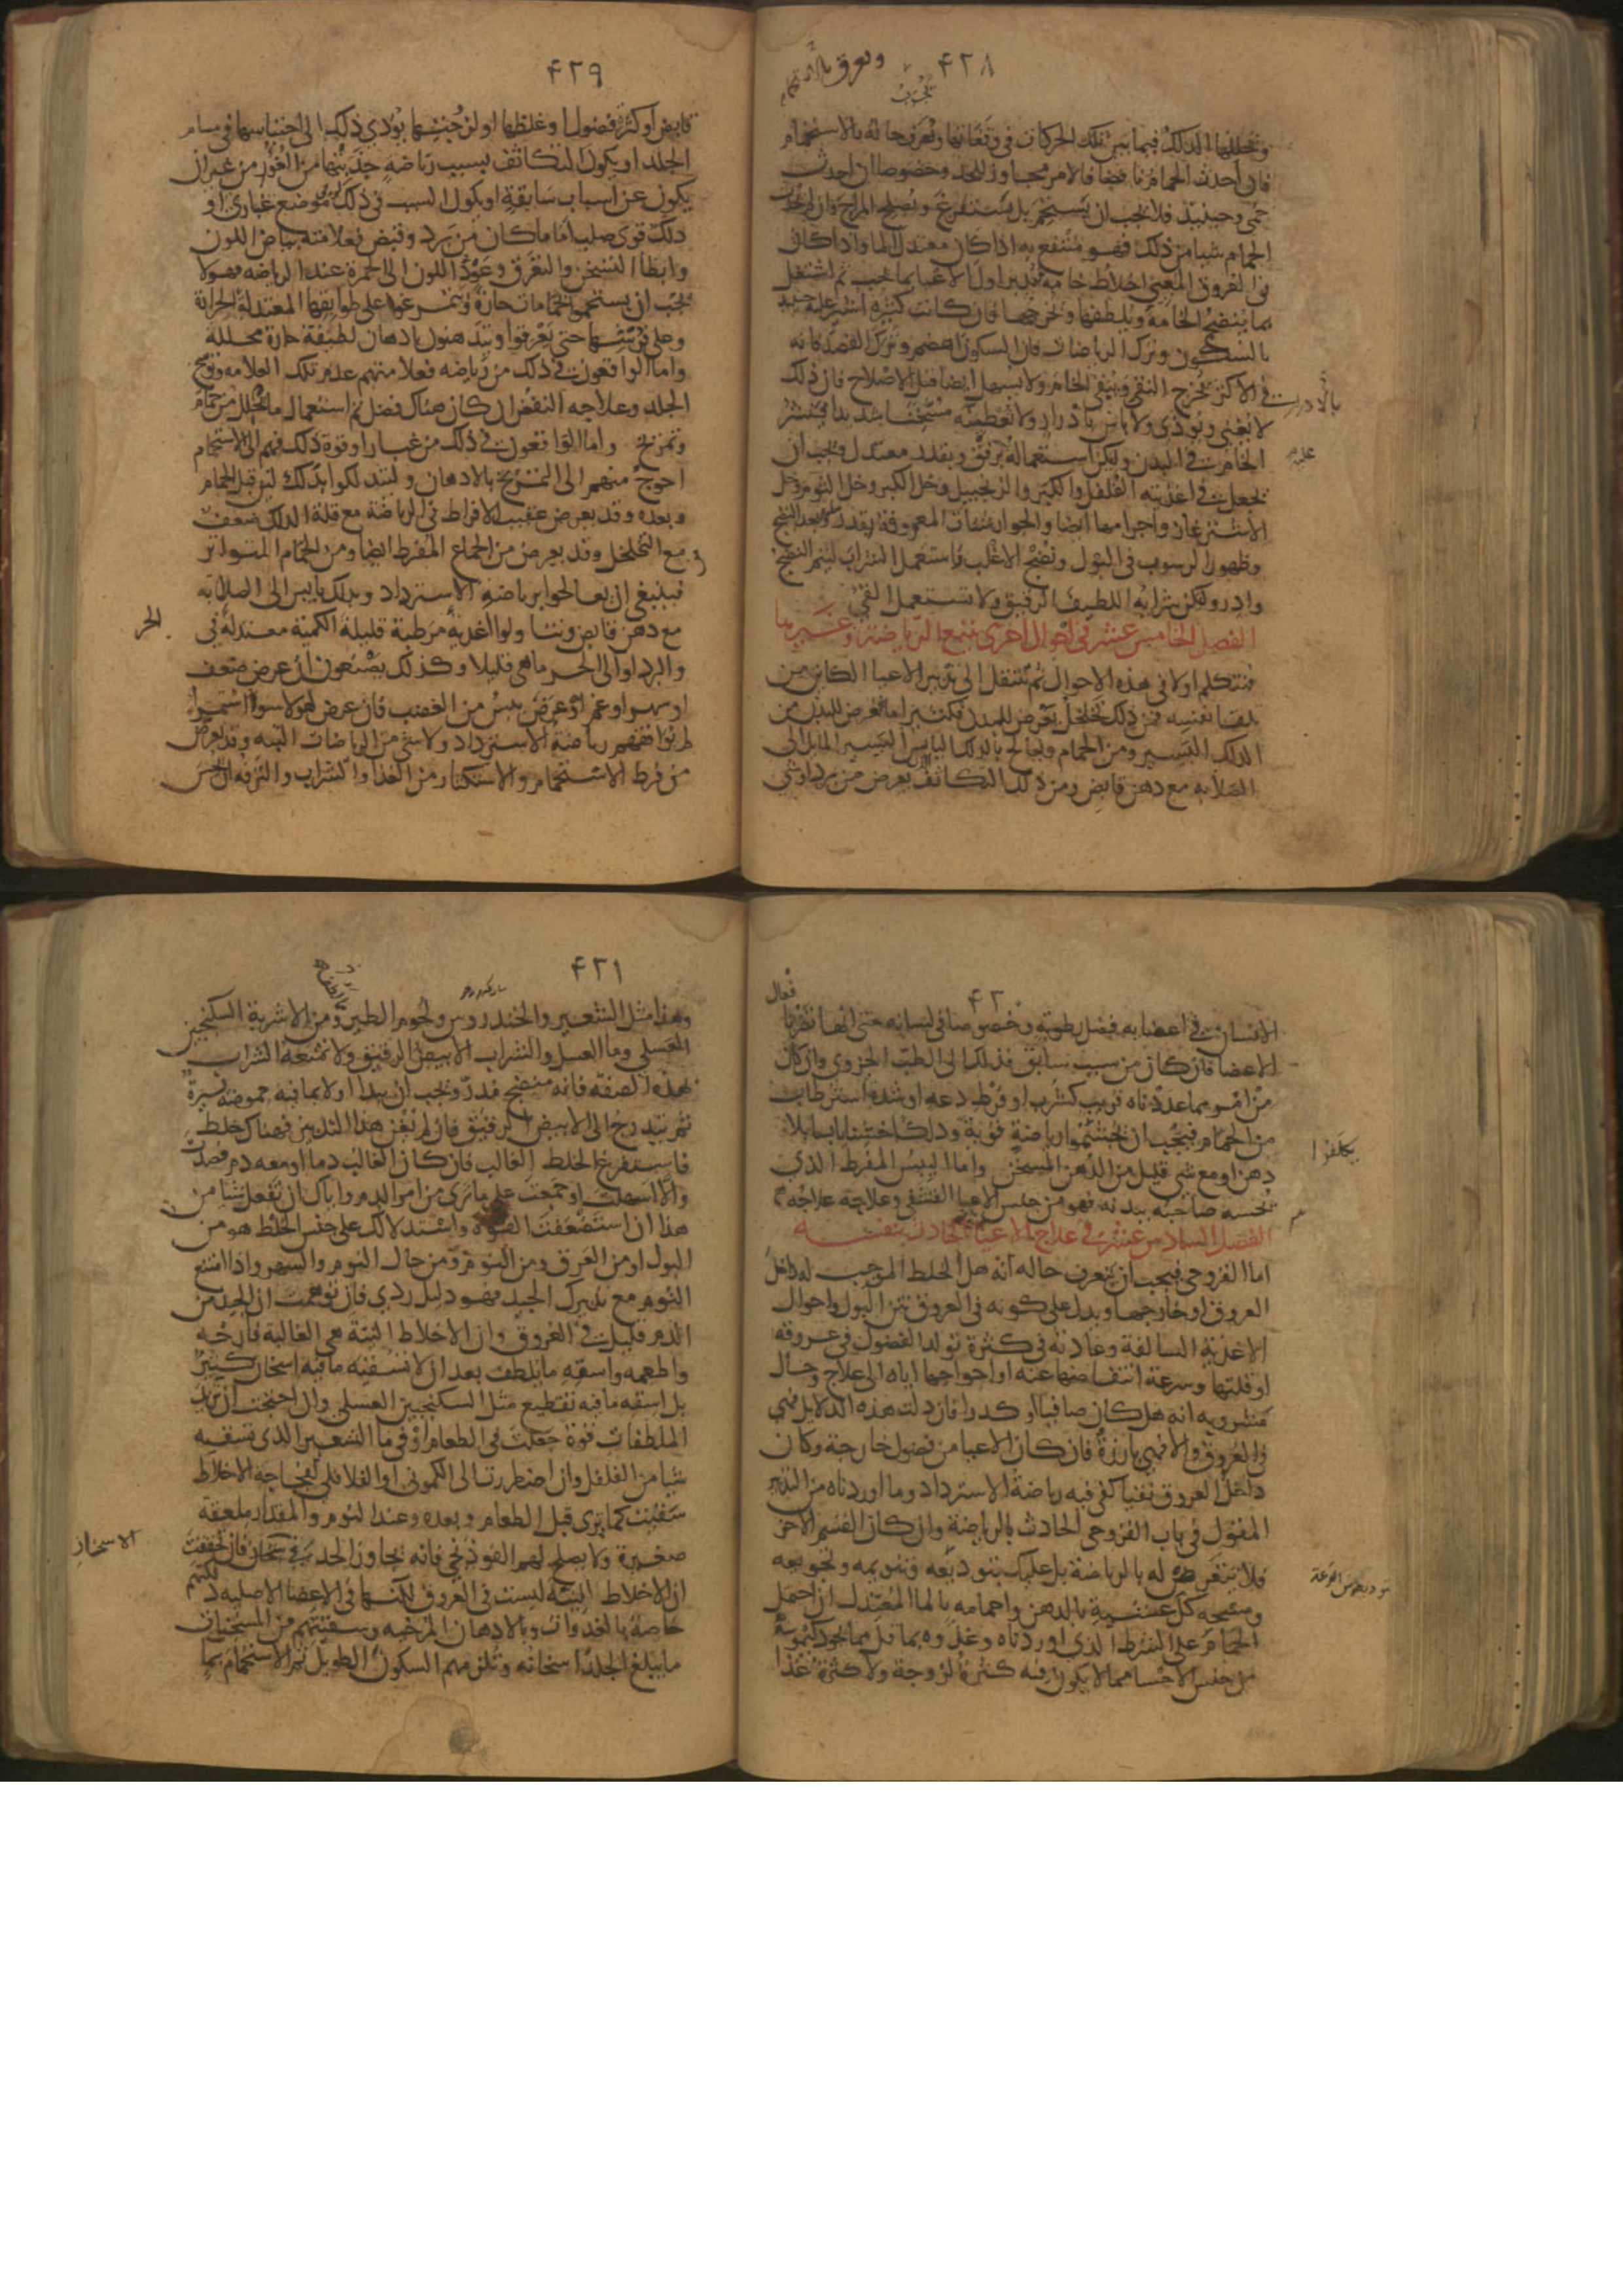 ٤٢٨
ويخللها الدلك فيما بين تلك الحركات في وقفاتها وتعرف حاله بالاستحمام
فان أحدث الحمام نافضا فالامر مجاوز للحد وخصوصا ان احدث
حمى وحينيذ فلا يجب ان يستحم بل يستفرغ ويصلح المزاج فان لم يحدث
الحمام شيا من ذلك فهو منتفع به اذا كان معتدل الما واذا كان
في العروق المعيي اخلاط خامة فدبر اولا الاعيا بما يجب ثم اشتغل
بما ينضج الخامة ويلطفها ويخرجها فان كانت كثيرة اشير عليه حينيذ
بالسكون وترك الرياضات فان السكون اهضم ويترك الفصد فانه
في الاكثر يخرج النقي ويبقى الخام ولا يسهل ايضا قبل الاصلاح فان ذلك
لا يغني ويوذي ولا باس بادرار ولا تعطيه مسخنا شديدا فينشر
الخام في البدن وليكن استعماله برفق وبقدر معتدل ويجب ان
يجعل في اغذيته الفلفل والكبر والزنجبيل وخل الكبر وخل الثوم وخل
الاشترغاز واجرامها ايضا والجوارشنات المعروفة بقدر وبعد النضج
وظهور الرسوب في البول ونضج الاغلب فاستعمل الشراب ليتم النضج
وادر وليكن شرابه اللطيف الرقيق ولا تستعمل القي
الفصل الخامس عشر في احوال اخرى تتبع الرياضة وغيرها
فنتكلم اولا في هذه الاحوال ثم ننتقل الى تدبير الاعيا الكاين من
تلقا نفسه فمن ذلك تخلخل يعرض للبدن فكثيرا ما يعرض للبدن من
الدلك اليسير ومن الحمام ويعالج بالدلك اليابس اليسير المايل الى
الصلابه مع دهن قابض ومن ذلك التكاثف يعرض من برد او شي
٤٢٩
قابض او كثرة فضول او غلظها او لزجتها يودي ذلك الى احتباسها في مسام
الجلد او يكون التكاثف بسبب رياضه جذبتها من الغور من غير ان
يكون عن اسباب سابقة او يكون السبب في ذلك موضع غباري او
دلك قوي صلب اما ما كان من برد وقبض فعلامته بياض اللون
وابطا التسخن والتعرق وعود اللون الى الحمرة عند الرياضه فهولا
يجب ان يستحموا بحمامات حارة ويتمرغوا على طوابقها المعتدلة الحرارة
وعلى فرشها حتى يعرقوا ويتدهنوا بادهان لطيفة حارة محللة
واما الواقعون في ذلك من رياضه فعلامتهم عدم تلك العلامه ووسخ
الجلد وعلاجه النفض ان كان هناك فضل ثم استعمال ما يحلل من حمام
وتمريخ واما الواقعون في ذلك من غبار او قوة ذلك فهم الى الاستحمام
احوج منهم الى التمريخ بالادهان وليتدلكوا بدلك لين قبل الحمام
وبعده وقد يعرض عقيب الافراط في الرياضة مع قلة الدلك ضعف
مع التخلخل وقد يعرض من الجماع المفرط ايضا ومن الحمام المتواتر
فينبغي ان يعالجوا برياضة الاسترداد وبدلك يابس الى الصلابه
مع دهن قابض ويتناولوا اغذية مرطبة قليلة الكمية معتدلة في
الحر
والبرد او الى الحر ما هي قليلا وكذلك يصنعون ان عرض ضعف
او سهر او غم او عرض يبس من الغضب فان عرض لهولا سوء استمراء
لم يوافقهم رياضة الاسترداد ولا شي من الرياضات البته وقد يعرض
من فرط الاستحمام والاستكثار من الغذا والشراب والترفه ان يحس
٤٣٠
الانسان في اعضايه بفضل رطوبه وخصوصا في لسانه حتى انها تضر بافعال
الاعضا فان كان من سبب سابق فذلك الى الطب الجزوي وان كان
من امر مما عددناه قريب كشرب او فرط دعه او شدة استرطاب
من الحمام فيجب ان يجشموا رياضة قوية ودلكا خشنا يابسا بلا
دهن او مع شي قليل من الدهن المسخن واما اليبس المفرط الذي
يحسه صاحبه ببدنه فهو من جنس الاعيا القشفي وعلاجه علاجه
الفصل السادس عشر في علاج الاعيا الحادث بنفسه
اما القروحي فيجب ان يتعرف حاله انه هل الخلط الموجب له داخل
العروق او خارجها ويدل على كونه في العروق نتن البول واحوال
الاغذية السالفة وعادته في كثرة تولد الفضول في عروقه
او قلتها وسرعة انتفاضها عنه او احواجها اياه الى علاج وحال
مشروبه انه هل كان صافيا او كدرا فان دلت هذه الدلايل فهي
في العروق والا فهي بارزة فان كان الاعيا من فضول خارجة وكان
داخل العروق نقيا كفى فيه رياضة الاسترداد وما اوردناه من التدبير
المقول في باب القروحي الحادث بالرياضة وان كان القسم الاخر
فلا تتعرض له بالرياضة بل عليك بتوديعه وتنويمه وتجويعه
ومسحه كل عشية بالدهن واحمامه بالما المعتدل ان احتمل
الحمام على الشرط الذي اوردناه وغذوه بما قل مما يجود كيموسه
من جنس الاحسا مما لا يكون فيه كثرة لزوجة ولا كثرة غذا
٤٣١
وهذا مثل الشعير والخندروس ولحوم الطير ومن الاشربة السكنجبين
العسلي وما العسل والشراب الابيض الرقيق ولا تمنعه الشراب
بهذه الصفه فانه منضج مدر ويجب ان يبدا اولا بما فيه حموضة يسيرة
ثم يتدرج الى الابيض الرقيق فان لم يغن هذا التدبير فهناك خلط
فاستفرغ الخلط الغالب فان كان الغالب دما او معه دم فصدت
والا اسهلت او جمعت على ما ترى من امر الدم واياك ان تفعل شيا من
هذا ان استضعفت القوة واستدلالك على جنس الخلط هو من
البول او من العرق ومن النوم ومن حال النوم والسهر واذا امتنع
النوم مع تدبيرك الجيد فهو دليل ردي فان توهمت ان الجيد من
الدم قليل في العروق وان الاخلاط النية هي الغالبة فارحه
واطعمه واسقه ما يلطف بعد ان لا تسقيه ما فيه اسخان كثير
بل اسقه ما فيه تقطيع مثل السكنجبين العسلي وان احتجت ان تزيد
الملطفات قوة جعلت في الطعام او في ما الشعير الذي تسقيه
شيا من الفلفل وان اضطررت الى الكموني او الفلافلي لفجاجة الاخلاط
سقيت كما ترى قبل الطعام وبعده وعند النوم والمقدار ملعقة
صغيرة ولا يصلح لهم الفوذنجي فانه يجاوز الحد في
الاسخان
فان تحققت
ان الاخلاط النية ليست في العروق لكنها في الاعضا الاصليه
خاصة بالغدوات وبالادهان المرخيه وسقيتهم من المسخنات
ما يبلغ الجلد اسخانه وتلزمهم السكون الطويل ثم الاستحمام بما